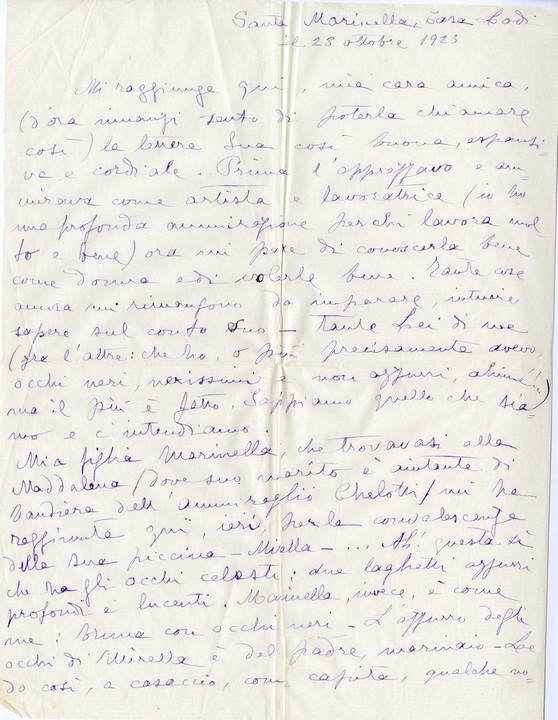 Santa Marinella, Casa Lodi
il 23 ottobre 1923
Mi raggiunge qui, mia cara amica,
(d'ora innanzi sento di poterla chiamare
così) la lettera Sua così buona, espansi-
va e cordiale. Prima l'apprezzavo e am-
miravo come artista e lavoratrice (io ho
una profonda ammirazione per chi lavora mol-
to e bene) ora mi pare di conoscerla bene
come donna e di volerle bene. Tante cose
ancora mi rimangono da imparare, intuire
sapere sul conto suo - tante Lei di me
(fra l'altre: che ho, o più precisamente avevo,
occhi neri, nerissimi e non azzurri, ahimè!!)
ma il più è fatto. Sappiamo quello che sia-
mo e c'intendiamo.
Mia figlia Marinella, che trovavasi alla
Maddalena (dove suo marito è aiutante di
bandiera dell'ammiraglio Chelotti) mi ha
raggiunta qui, ieri, per la convalescenza
della sua piccina - Mirella - ... Ah! questa sì
che ha gli occhi celesti: due laghetti azzurri
profondi e lucenti. Marinella, invece, è come
me: bruna con occhi neri - L'azzurro degli
occhi di Mirella è del padre, marinaio -
do così, a casaccio, come capita, qualche no-